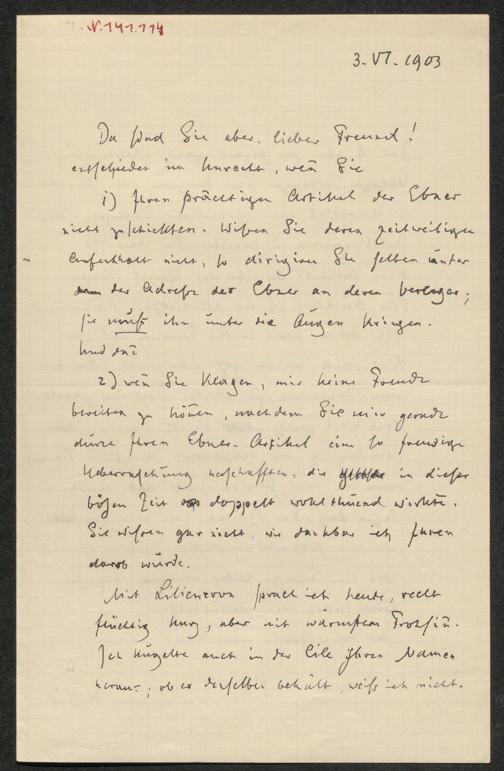 N. 141.114
3. VI. 1903
Da sind Sie aber, lieber Freund!
entschieden im Unrecht, wen̄ Sie
1) Ihren prächtigen Artikel der Ebner
nicht zuschickten. Wissen Sie deren zeitweiligen
Aufenthalt nicht, so dirigiren Sie selben unter
der Adresse der Ebner an deren Verleger;
sie muß ihn unter die Augen kriegen.
Und dan̄
2) wen̄ Sie klagen, mir keine Freude
bereiten zu kön̄en, nachdem Sie mir gerade
durch Ihren Ebner-Artikel eine so freudige
Ueberraschung verschafften, die in dieser
bösen Zeit doppelt wohlthuend wirkte.
Sie wissen gar nicht, wie dankbar ich Ihnen
darob wurde.
Mit Liliencron sprach ich heute, recht
flüchtig kurz, aber mit wärmstem Frohsin̄.
Ich kugelte auch in der Eile Ihren Namen
heraus; ob er denselben behält, weiß ich nicht.